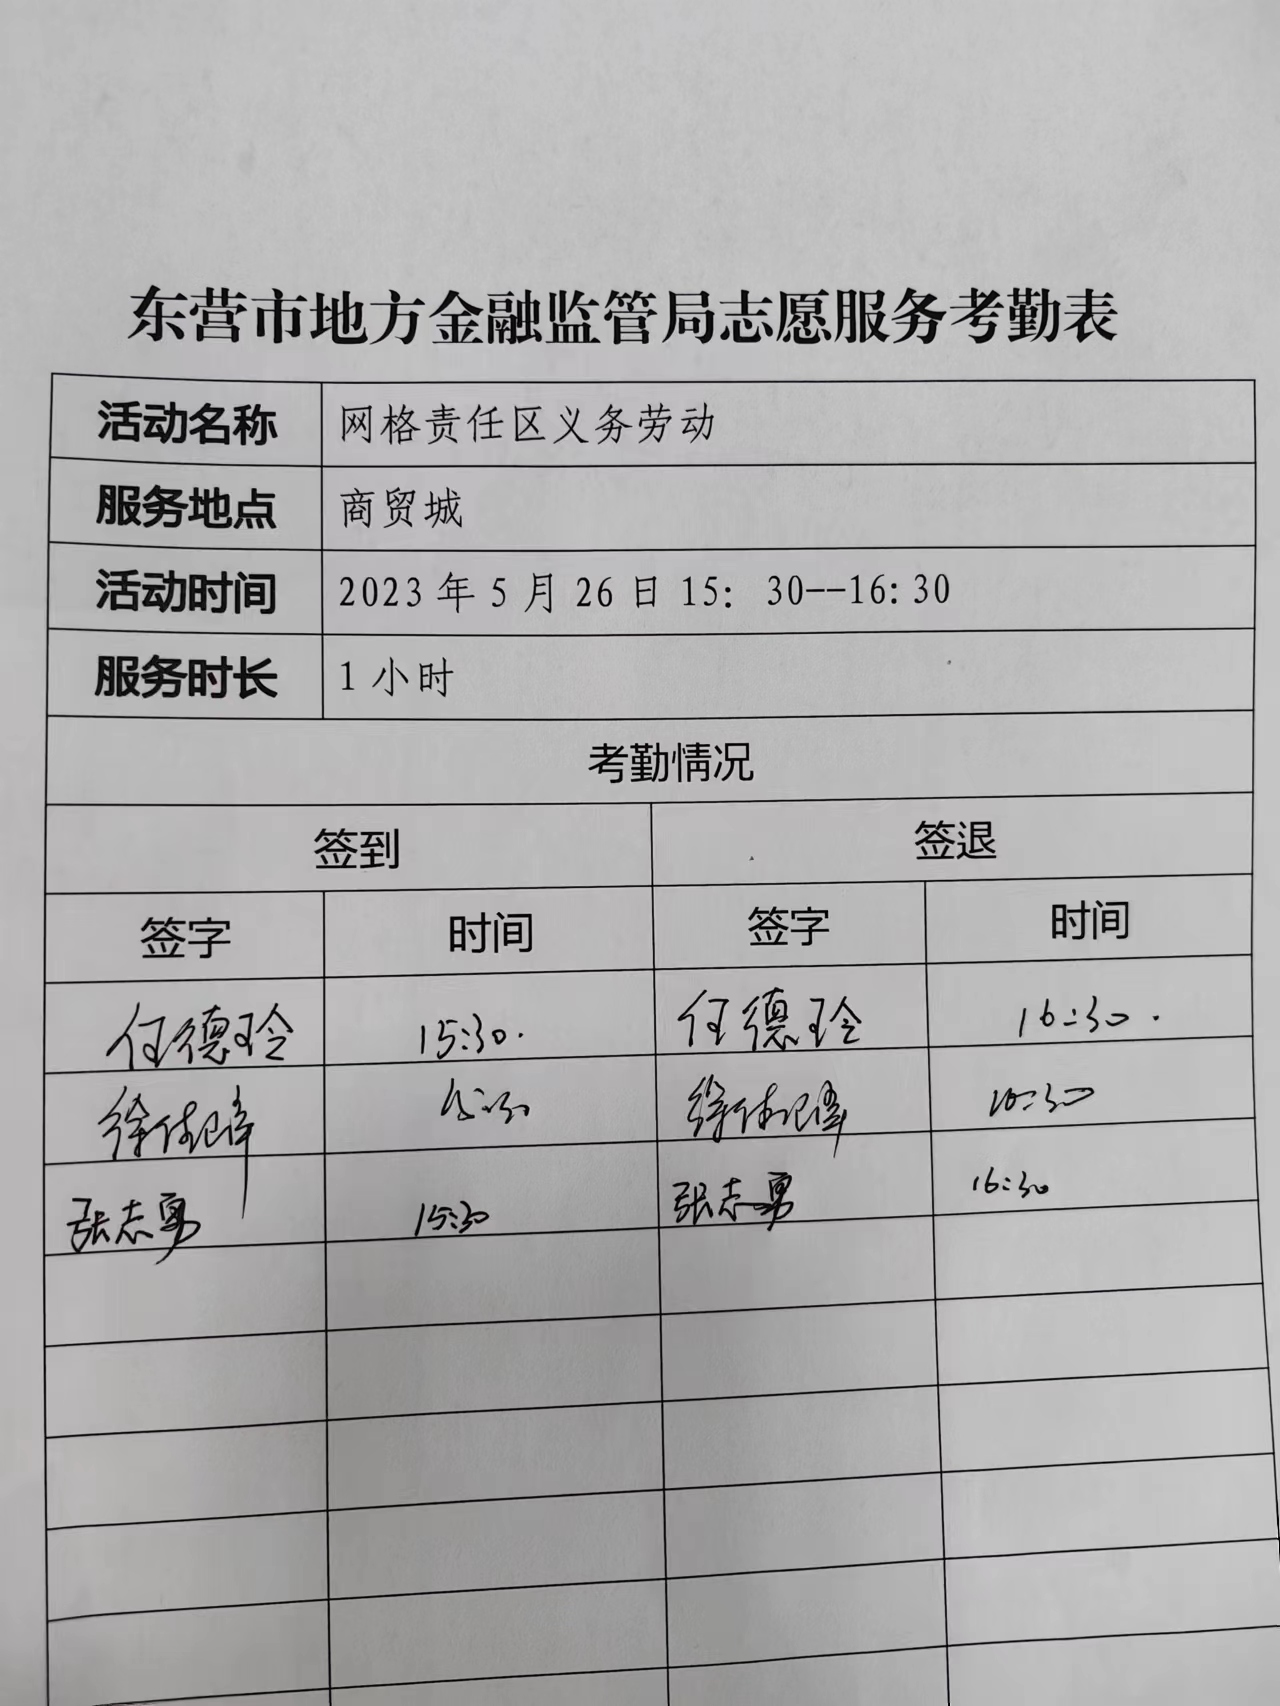 东营市地方金融监管局志愿服务考勤表
活动名称 网格责任区义务劳动
服务地点 商贸城
活动时间 2023年5月26日15：30--16:30
服务时长 1小时
考勤情况
签到 签退
签字 时间 签字 时间
任德玲 15:30. 任德玲 16:30.
徐 15:30 徐 16:30
张志勇 15:30 张志勇 16:30